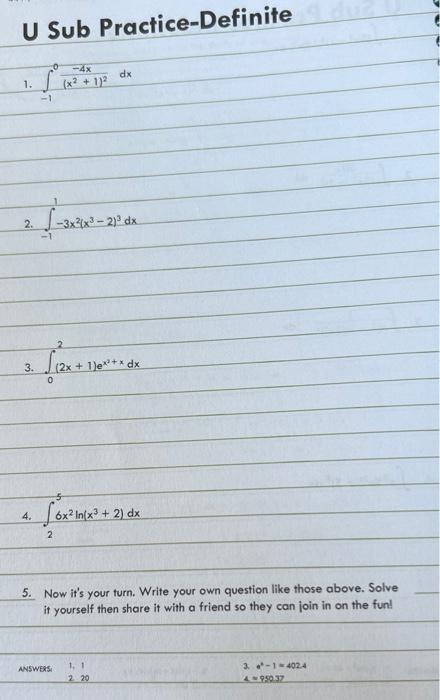 U Sub Practice-Definite
1. ∫₋₁⁰ -4x/(x² + 1)² dx
2. ∫₋₁¹ -3x²(x³ - 2)³ dx
3. ∫₀² (2x + 1)eˣ²⁺ˣ dx
4. ∫₂⁵ 6x² ln(x³ + 2) dx
5. Now it's your turn. Write your own question like those above. Solve
it yourself then share it with a friend so they can join in on the fun!
ANSWERS: 1. 1 3. e⁶ - 1 ≈ 402.4
2. 20 4. ≈ 950.37